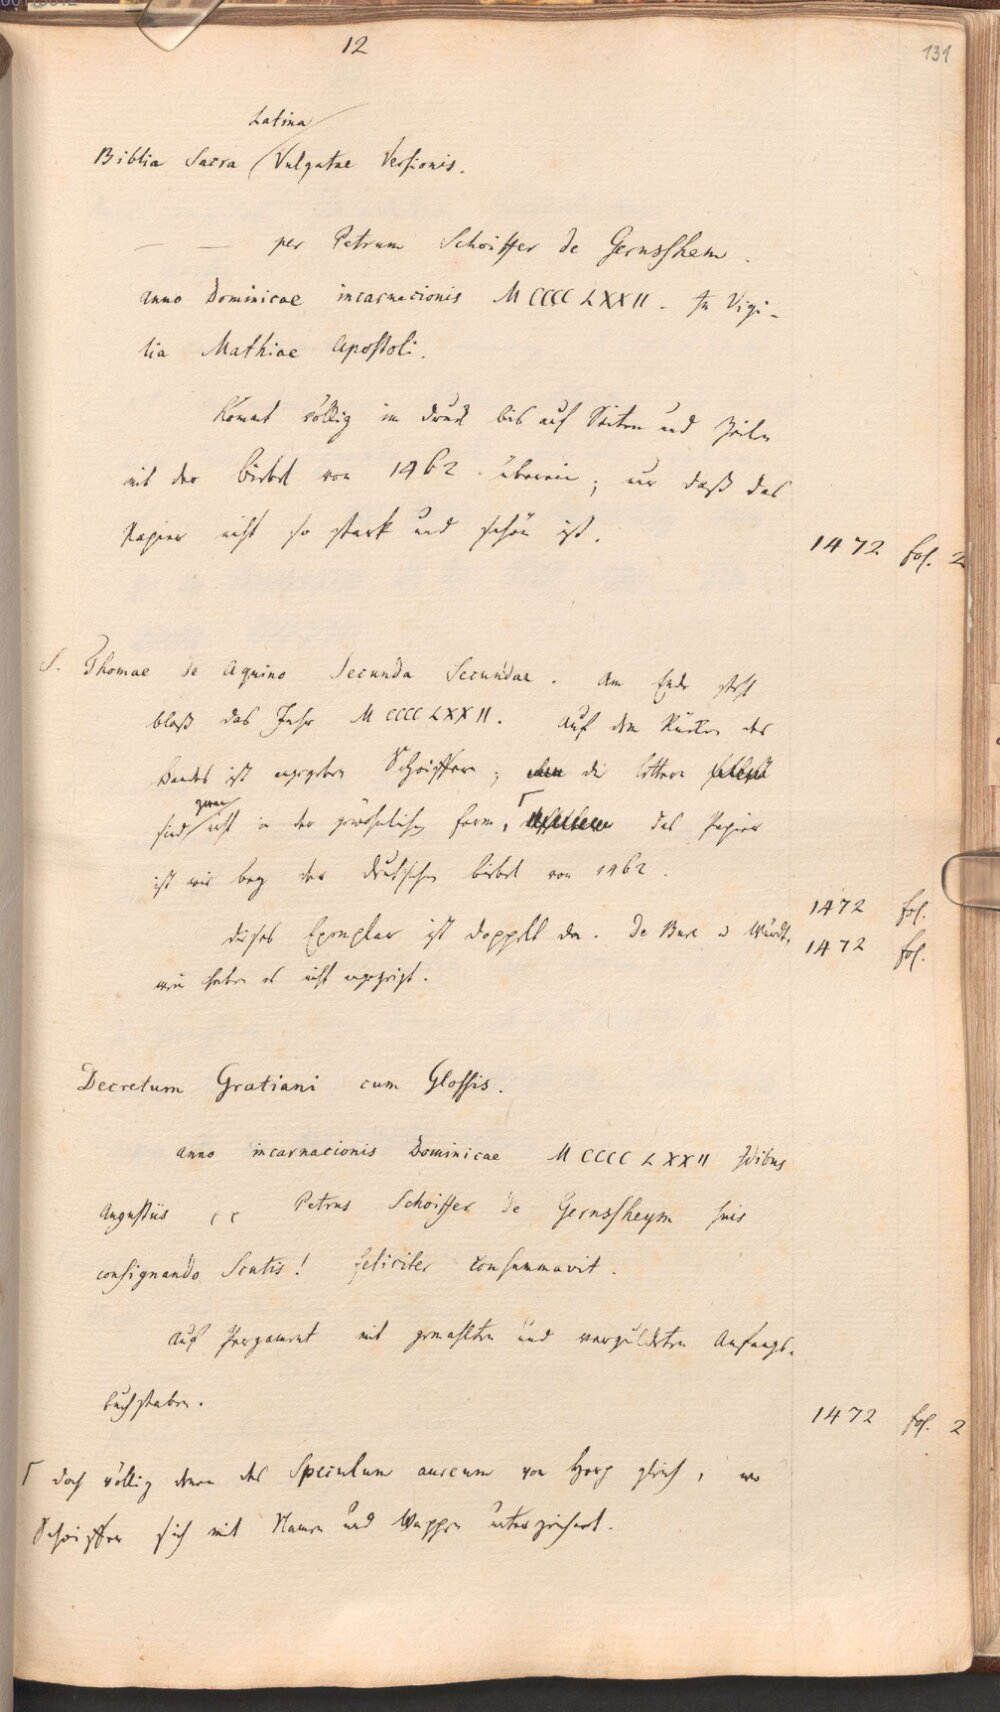 12
131
Latina
Biblia Sacra / Vulgatae Versionis.
— — per Petrum Schoiffer de Gernsshem.
anno Dominicae incarnacionis MCCCCLXXII. In Vigi-
lia Mathiae Apostoli.
Kommt völlig im Druck bis auf Seiten und Zeilen
mit der Bibel von 1462 überein; nur daß das
Papier nicht so stark und schön ist.
1472 fol. 2
S. Thomae de Aquino Secunda Secundae. Am Ende steht
bloß das Jahr MCCCCLXXII. Auf dem Rücken des
Bandes ist angegeben Schoiffern; die Littern
zwar
sind / nicht in der gewöhnlichen Form, ⌈ das Papier
ist wie bey der deutschen Bibel von 1462.
1472 fol.
dieses Exemplar ist doppelt da. De Bure u Würdt-
1472 fol.
wein haben es nicht angezeigt.
Decretum Gratiani cum Glossis.
anno incarnacionis Dominicae MCCCCLXXII Idibus
Augustiis cc Petrus Schoiffer de Gernssheym suis
consignando Scutis! feliciter consummavit.
Auf Pergament mit gemahlten und verguldeten Anfangs-
buchstaben.
1472 fol. 2
⌈ doch völlig denen des Speculum aureum von Herp gleich, wo
Schoiffer sich mit Namen und Wappen unterzeichnet.